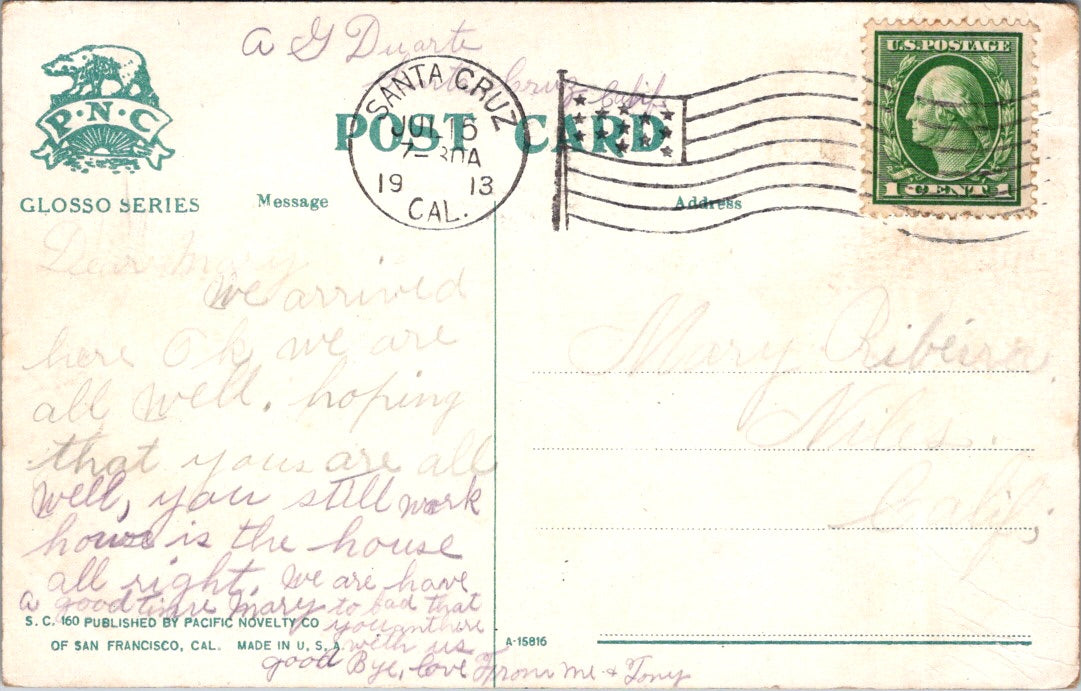 A G Duarte
Cruz Calif.
U.S. POSTAGE
1 CENT 1
P·N·C
GLOSSO SERIES
POST CARD
SANTA CRUZ
JUL 16
7-30A
1913
CAL.
Message
Address
Dear Mary
We arrived
here Ok we are
all well. hoping
that yous are all
well, you still work
house is the house
all right. We are have
a good time Mary to bad that
you ant here
with us
good Bye, love From me + Tony
Mary Ribeiro
Niles.
Calif,
S. C. 160 PUBLISHED BY PACIFIC NOVELTY CO
OF SAN FRANCISCO, CAL. MADE IN U. S. A.
A-15816